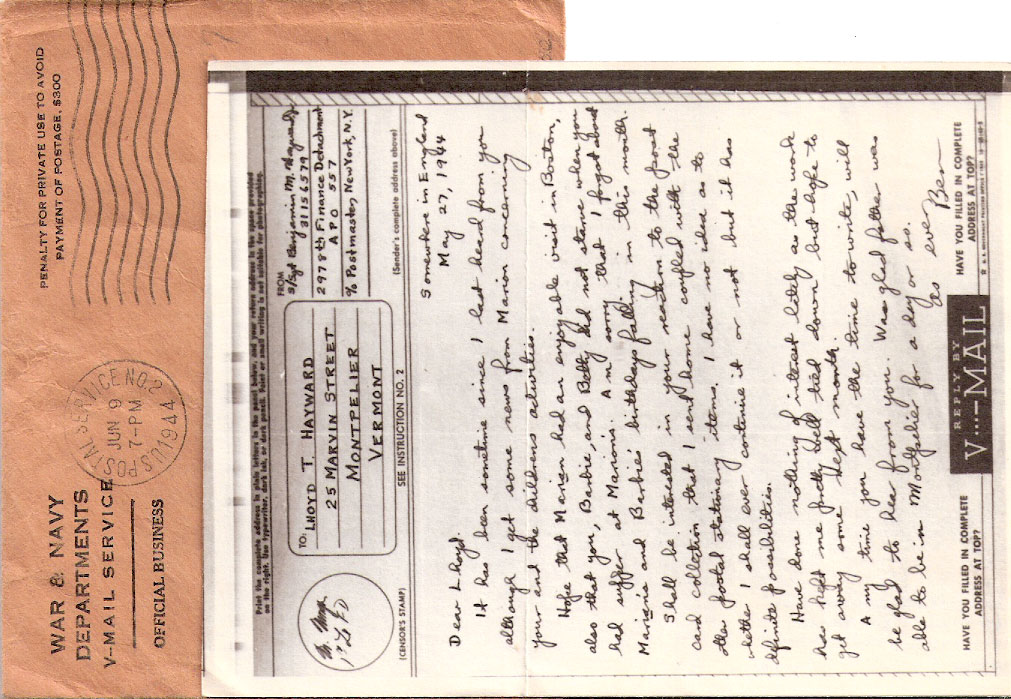 PENALTY FOR PRIVATE USE TO AVOID
PAYMENT OF POSTAGE, $300
U.S. POSTAL SERVICE NO. 2
JUN 9
7-PM
1944
WAR & NAVY
DEPARTMENTS
V-MAIL SERVICE
OFFICIAL BUSINESS
Print the complete address in plain letters in the panel below, and your return address in the space provided
on the right. Use typewriter, dark ink, or dark pencil. Faint or small writing is not suitable for photographing.
TO:
LHOYD T. HAYWARD
25 MARVIN STREET
MONTPELIER
VERMONT
FROM
S/Sgt Benjamin M. Hayward, Jr
31156379
2978th Finance Detachment
APO 557
% Postmaster, New York, N.Y.
(CENSOR'S STAMP)
SEE INSTRUCTION NO. 2
(Sender's complete address above)
Somewhere in England
May 27, 1944
Dear Lhoyd
It has been sometime since I last heard from you
although I get some news from Marion concerning
your and the childrens activities.
Hope that Marion had an enjoyable visit in Boston,
also that you, Barbie, and Betty did not starve when you
had supper at Marions. Am sorry that I forgot about
Marions and Barbies' birthdays falling in this month.
Shall be interested in your reaction to the post
card collection that I sent home coupled with the
other postal stationary items. I have no idea as to
whether I shall ever continue it or not but it has
definite possibilities.
Have done nothing of interest lately as the work
has kept me pretty well tied down but hope to
get away some next month.
Any time you have the time to write, will
be glad to hear from you. Was glad father was
able to be in Montpelier for a day or so.
As ever
Ben
HAVE YOU FILLED IN COMPLETE
ADDRESS AT TOP?
REPLY BY
V...-MAIL
HAVE YOU FILLED IN COMPLETE
ADDRESS AT TOP?